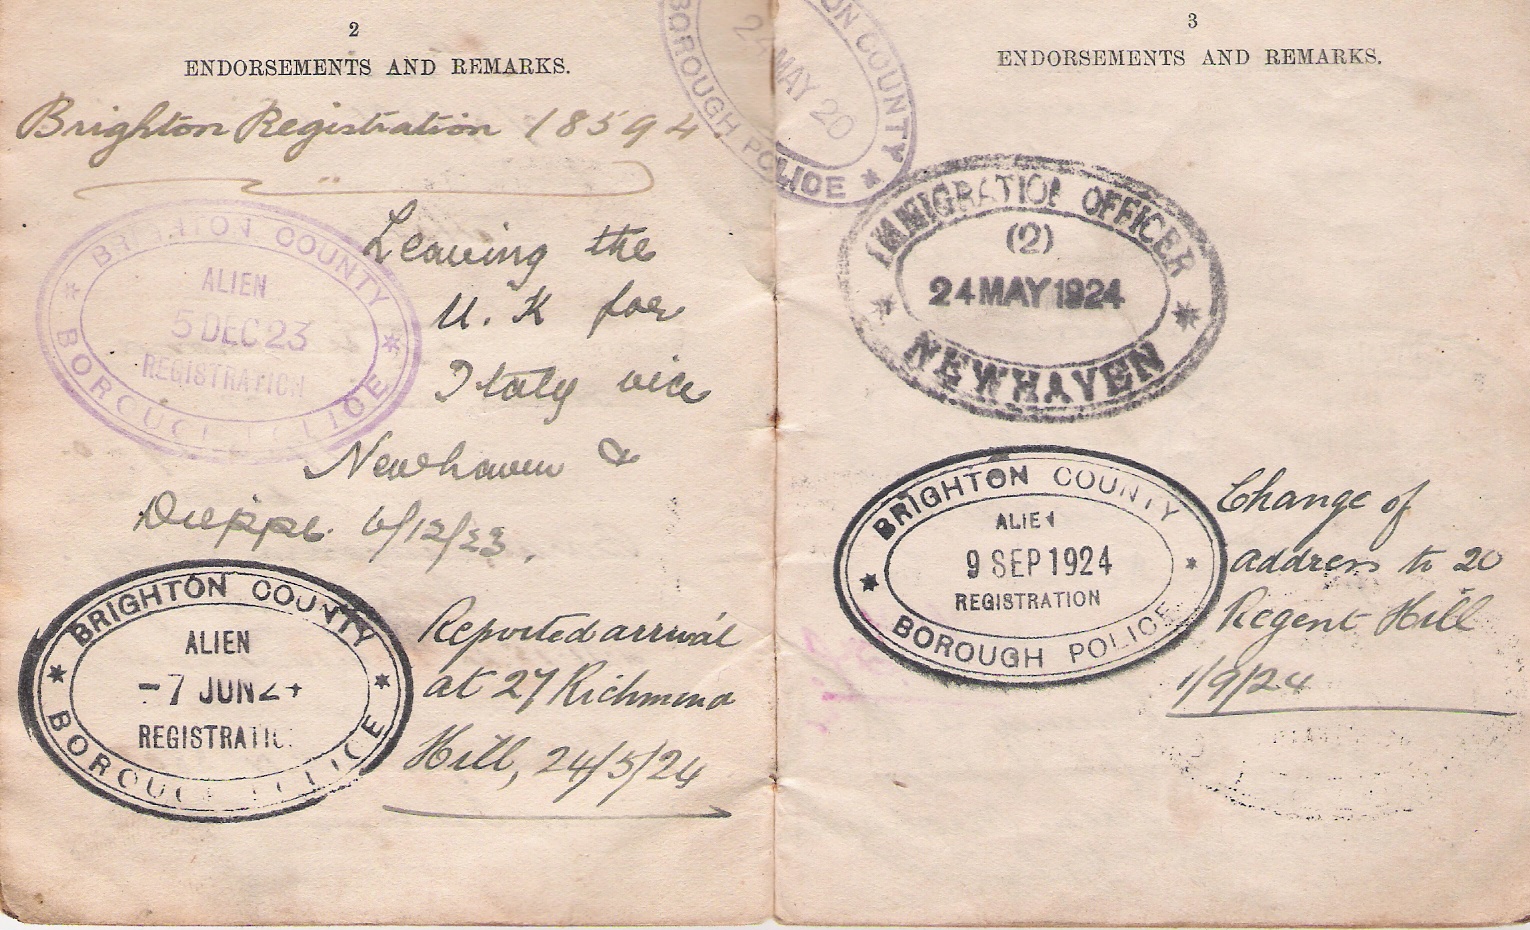 2
ENDORSEMENTS AND REMARKS.
Brighton Registration 18594.
BRIGHTON COUNTY
ALIEN
5 DEC 23
REGISTRATION
BOROUGH POLICE
Leaving the
U.K for
Italy via
Newhaven &
Dieppe. 6/12/23.
BRIGHTON COUNTY
ALIEN
-7 JUN 24
REGISTRATION
BOROUGH POLICE
Reported arrival
at 27 Richmond
Hill, 24/5/24
ON COUNTY
24 MAY 20
BOROUGH POLICE
3
ENDORSEMENTS AND REMARKS.
IMMIGRATION OFFICER
(2)
24 MAY 1924
NEWHAVEN
BRIGHTON COUNTY
ALIEN
9 SEP 1924
REGISTRATION
BOROUGH POLICE
Change of
address to 20
Regent Hill
1/9/24